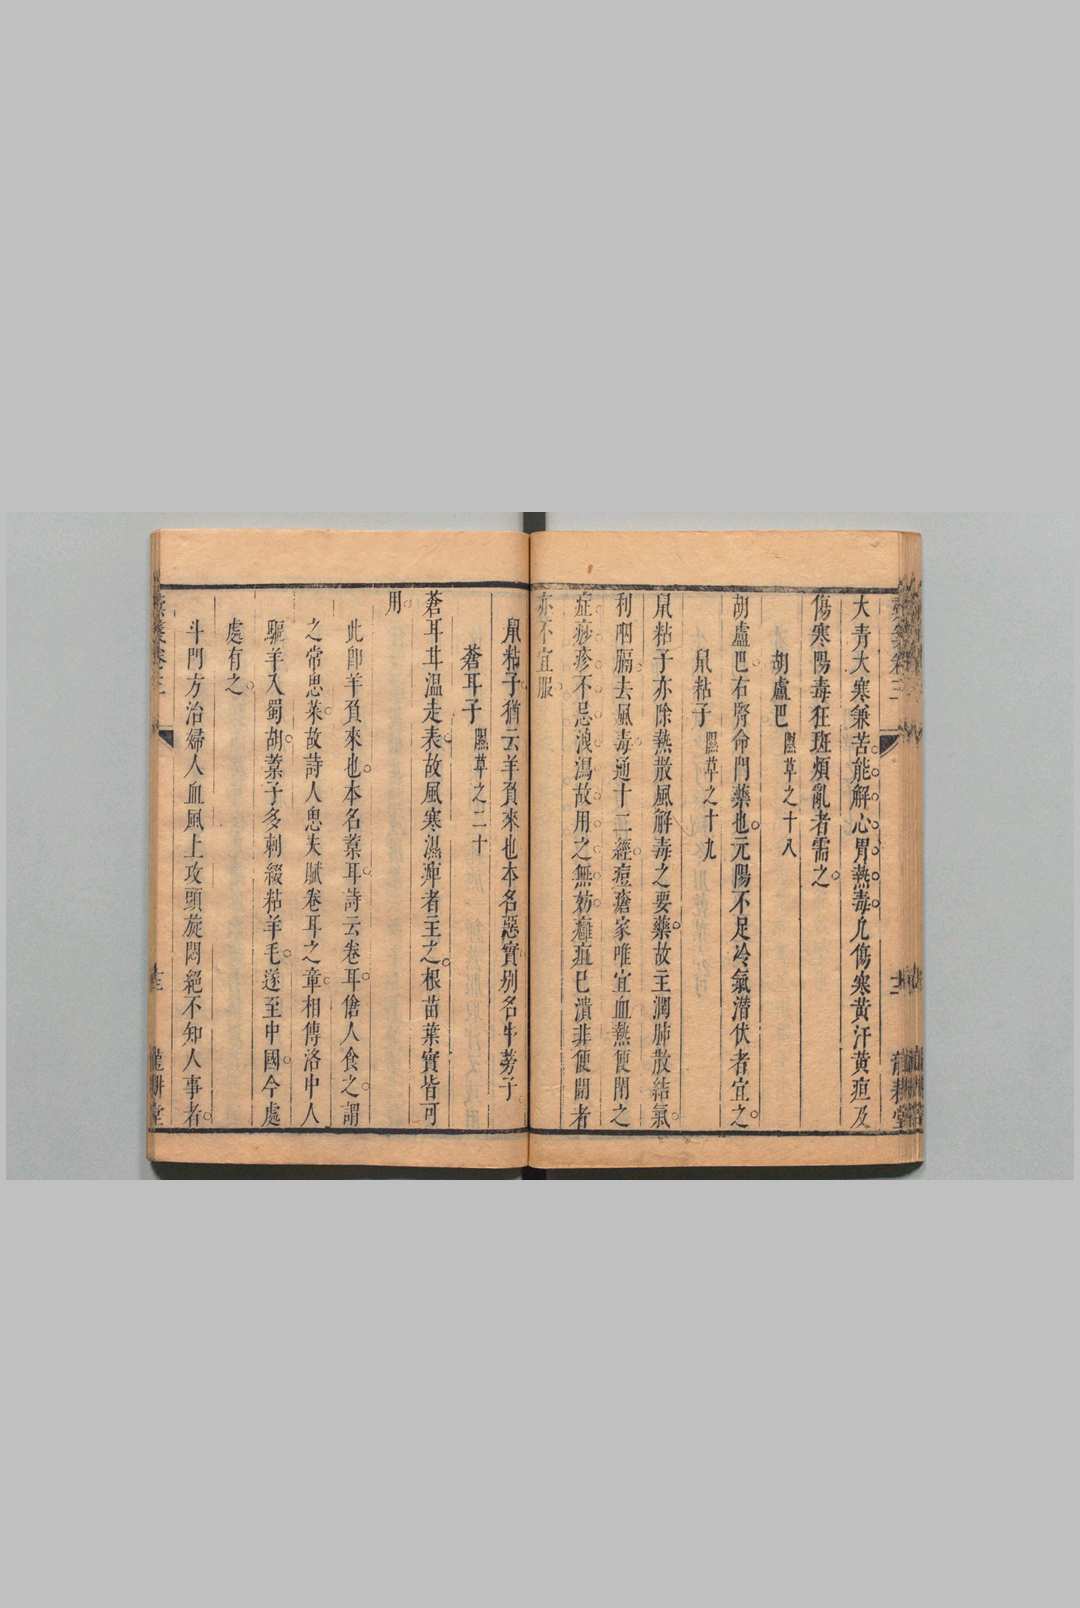 大青大寒兼苦能解心胃熱毒凡傷寒黃汗黃疸及
傷寒陽毒狂斑煩亂者需之
胡盧巴 隰草之十八
胡盧巴右腎命門藥也元陽不足冷氣潛伏者宜之
鼠粘子 隰草之十九
鼠粘子亦除熱散風解毒之要藥故主潤肺散結氣
利咽膈去風毒通十二經痘瘡家唯宜血熱便閉之
症痧疹不忌泄瀉故用之無妨癰疽已潰非便閉者
亦不宜服
鼠粘子猶云羊負來也本名惡實別名牛蒡子
蒼耳子 隰草之二十
蒼耳耳溫走表故風寒濕痺者主之根苗葉實皆可
用
此卽羊負來也本名葈耳詩云卷耳傖人食之謂
之常思菜故詩人思夫賦卷耳之章相傳洛中人
驅羊入蜀胡葈子多刺綴粘羊毛遂至中國今處
處有之
斗門方治婦人血風上攻頭旋悶絕不知人事者